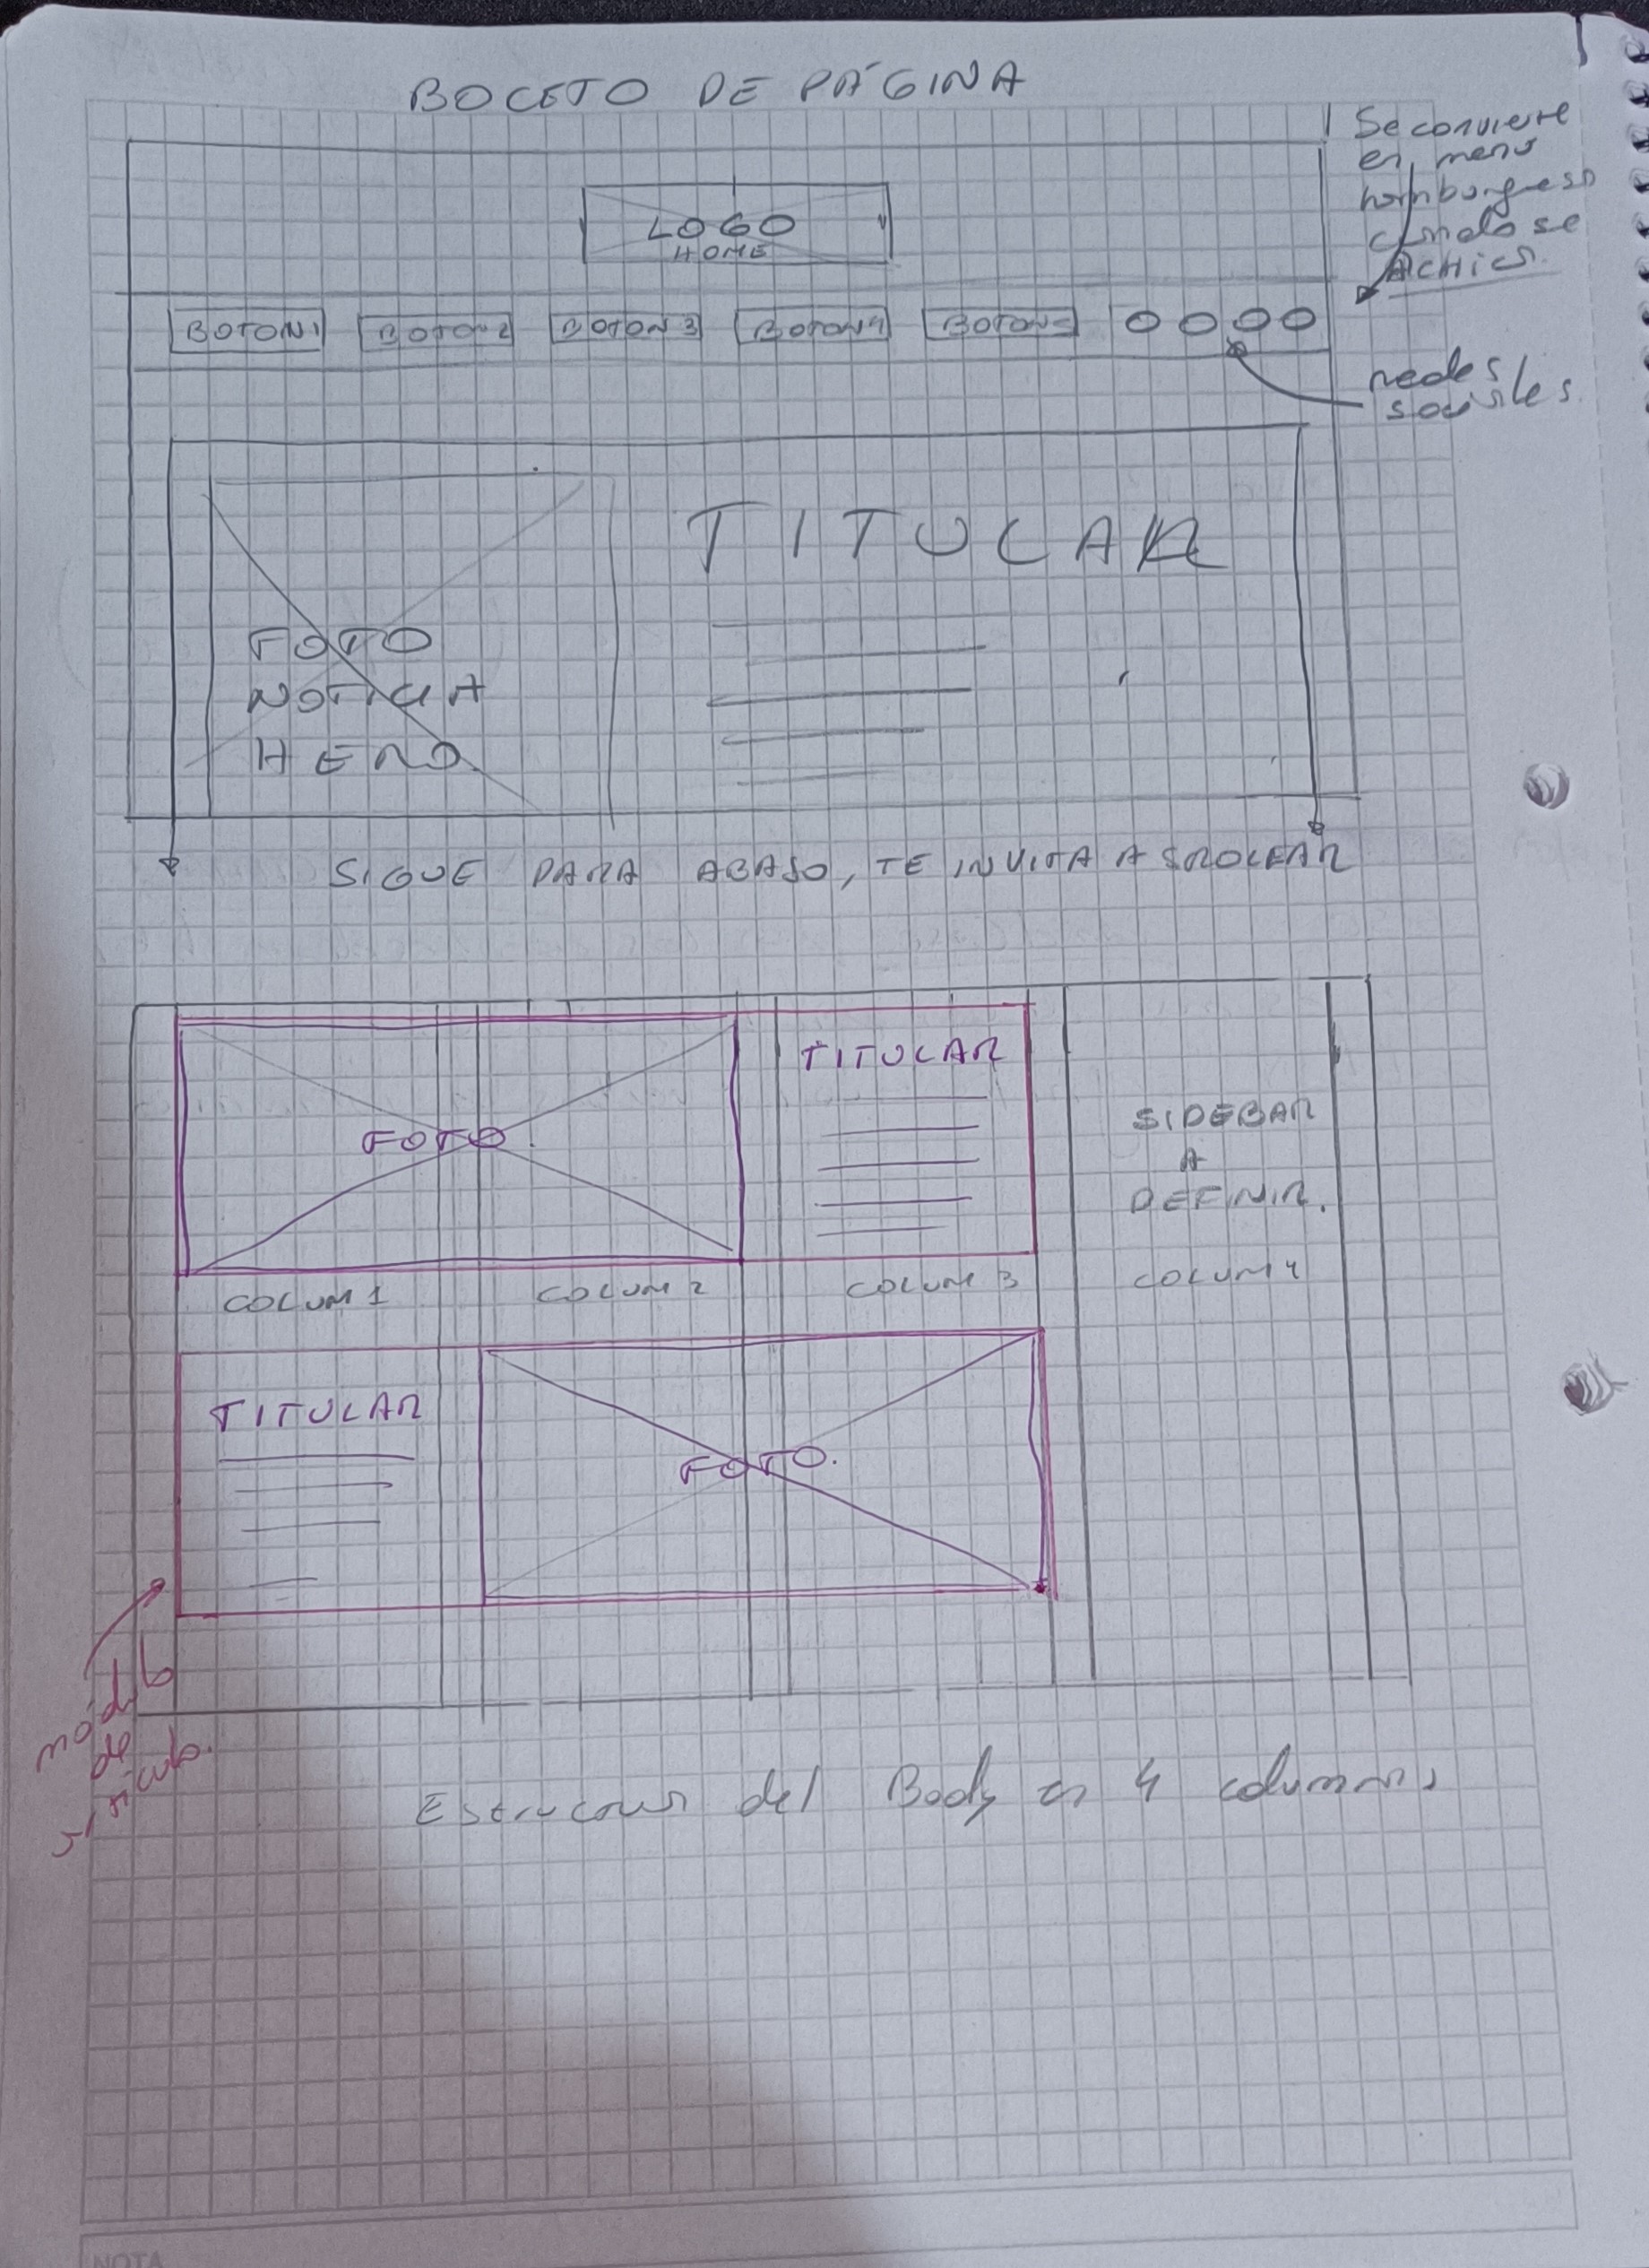 BOCETO DE PÁGINA
Se convierte
en menú
hamburguesa
cuando se
Achica.
LOGO
HOME
BOTON1 BOTON2 BOTON3 BOTON4 BOTON5
redes
sociales.
TITULAR
FOTO
NOTICIA
HERO
SIGUE PARA ABAJO, TE INVITA A SROLEAR
FOTO.
TITULAR
SIDEBAR
A
DEFINIR.
COLUM 1 COLUM 2 COLUM 3 COLUM 4
TITULAR
FOTO.
módulo
de
artículo.
Estructura del Body en 4 columnas
NOTA